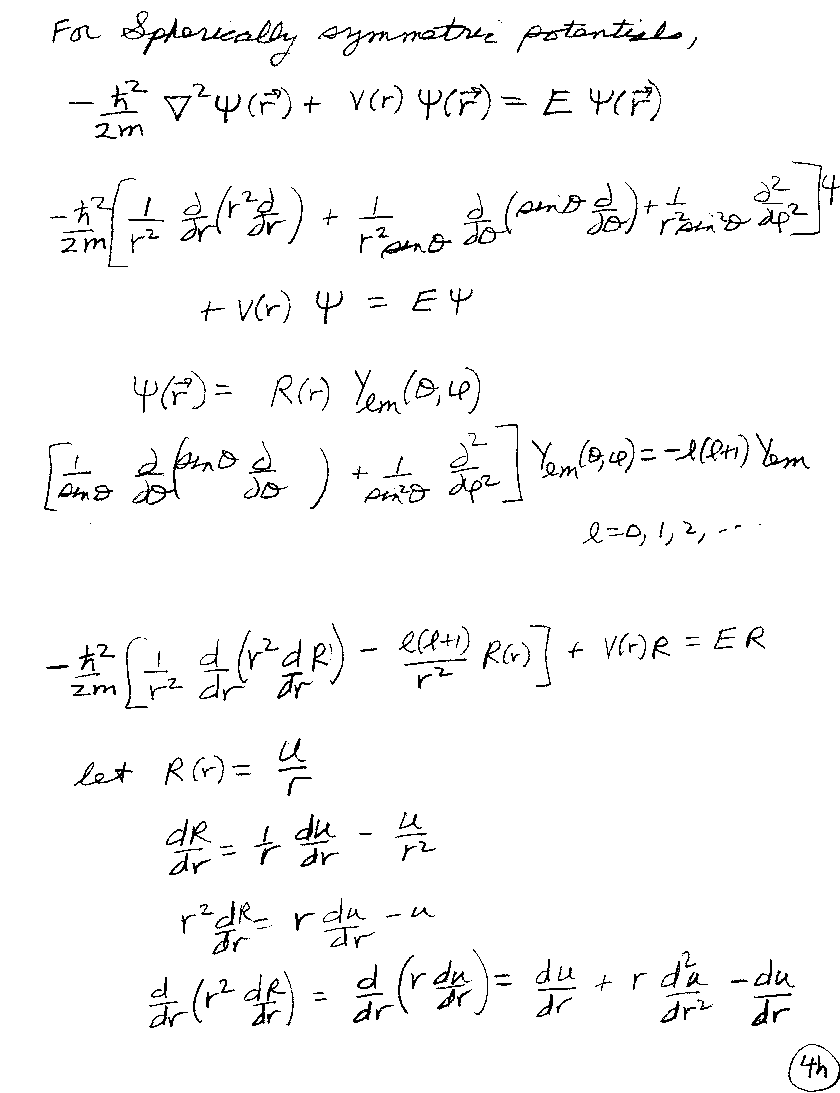 For Spherically symmetric potentials,
-ħ²/2m ∇²Ψ(r⃗) + V(r) Ψ(r⃗) = E Ψ(r⃗)
-ħ²/2m [1/r² ∂/∂r(r² ∂/∂r) + 1/(r² sinθ) ∂/∂θ(sinθ ∂/∂θ) + 1/(r² sin²θ) ∂²/∂φ²]Ψ
+ V(r) Ψ = E Ψ
Ψ(r⃗) = R(r) Yℓm(θ,φ)
[1/sinθ ∂/∂θ(sinθ ∂/∂θ) + 1/sin²θ ∂²/∂φ²] Yℓm(θ,φ) = -ℓ(ℓ+1) Yℓm
ℓ=0, 1, 2, ...
-ħ²/2m [1/r² d/dr(r² dR/dr) - ℓ(ℓ+1)/r² R(r)] + V(r)R = E R
let R(r) = u/r
dR/dr = 1/r du/dr - u/r²
r² dR/dr = r du/dr - u
d/dr(r² dR/dr) = d/dr(r du/dr) = du/dr + r d²u/dr² - du/dr
4h